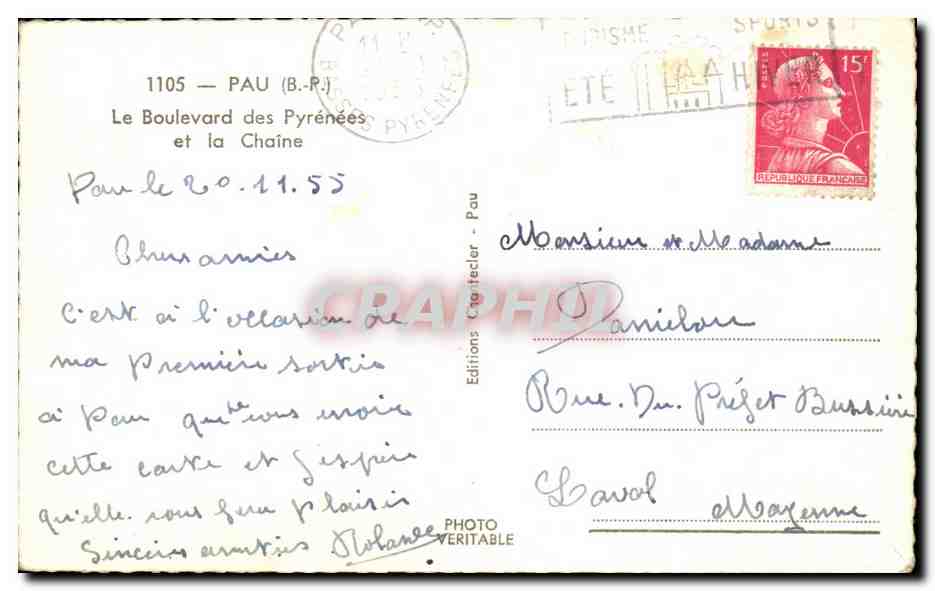 1105 — PAU (B.-P.)
Le Boulevard des Pyrénées
et la Chaîne
BASSES PYRENEES
SPORTS
ÉTÉ
POSTES 15F
REPUBLIQUE FRANÇAISE
Pau le 20.11.55
Chers amies
C'est à l'occasion de
ma première sortie
à Pau que vous
cette carte et j'espère
qu'elle vous fera plaisir
Sincères amitiés Rolande
Editions Chantecler - Pau
PHOTO
VERITABLE
Monsieur et Madame
Rue. Du. Préfet Bussière
Laval
Mayenne
CRAPHIL